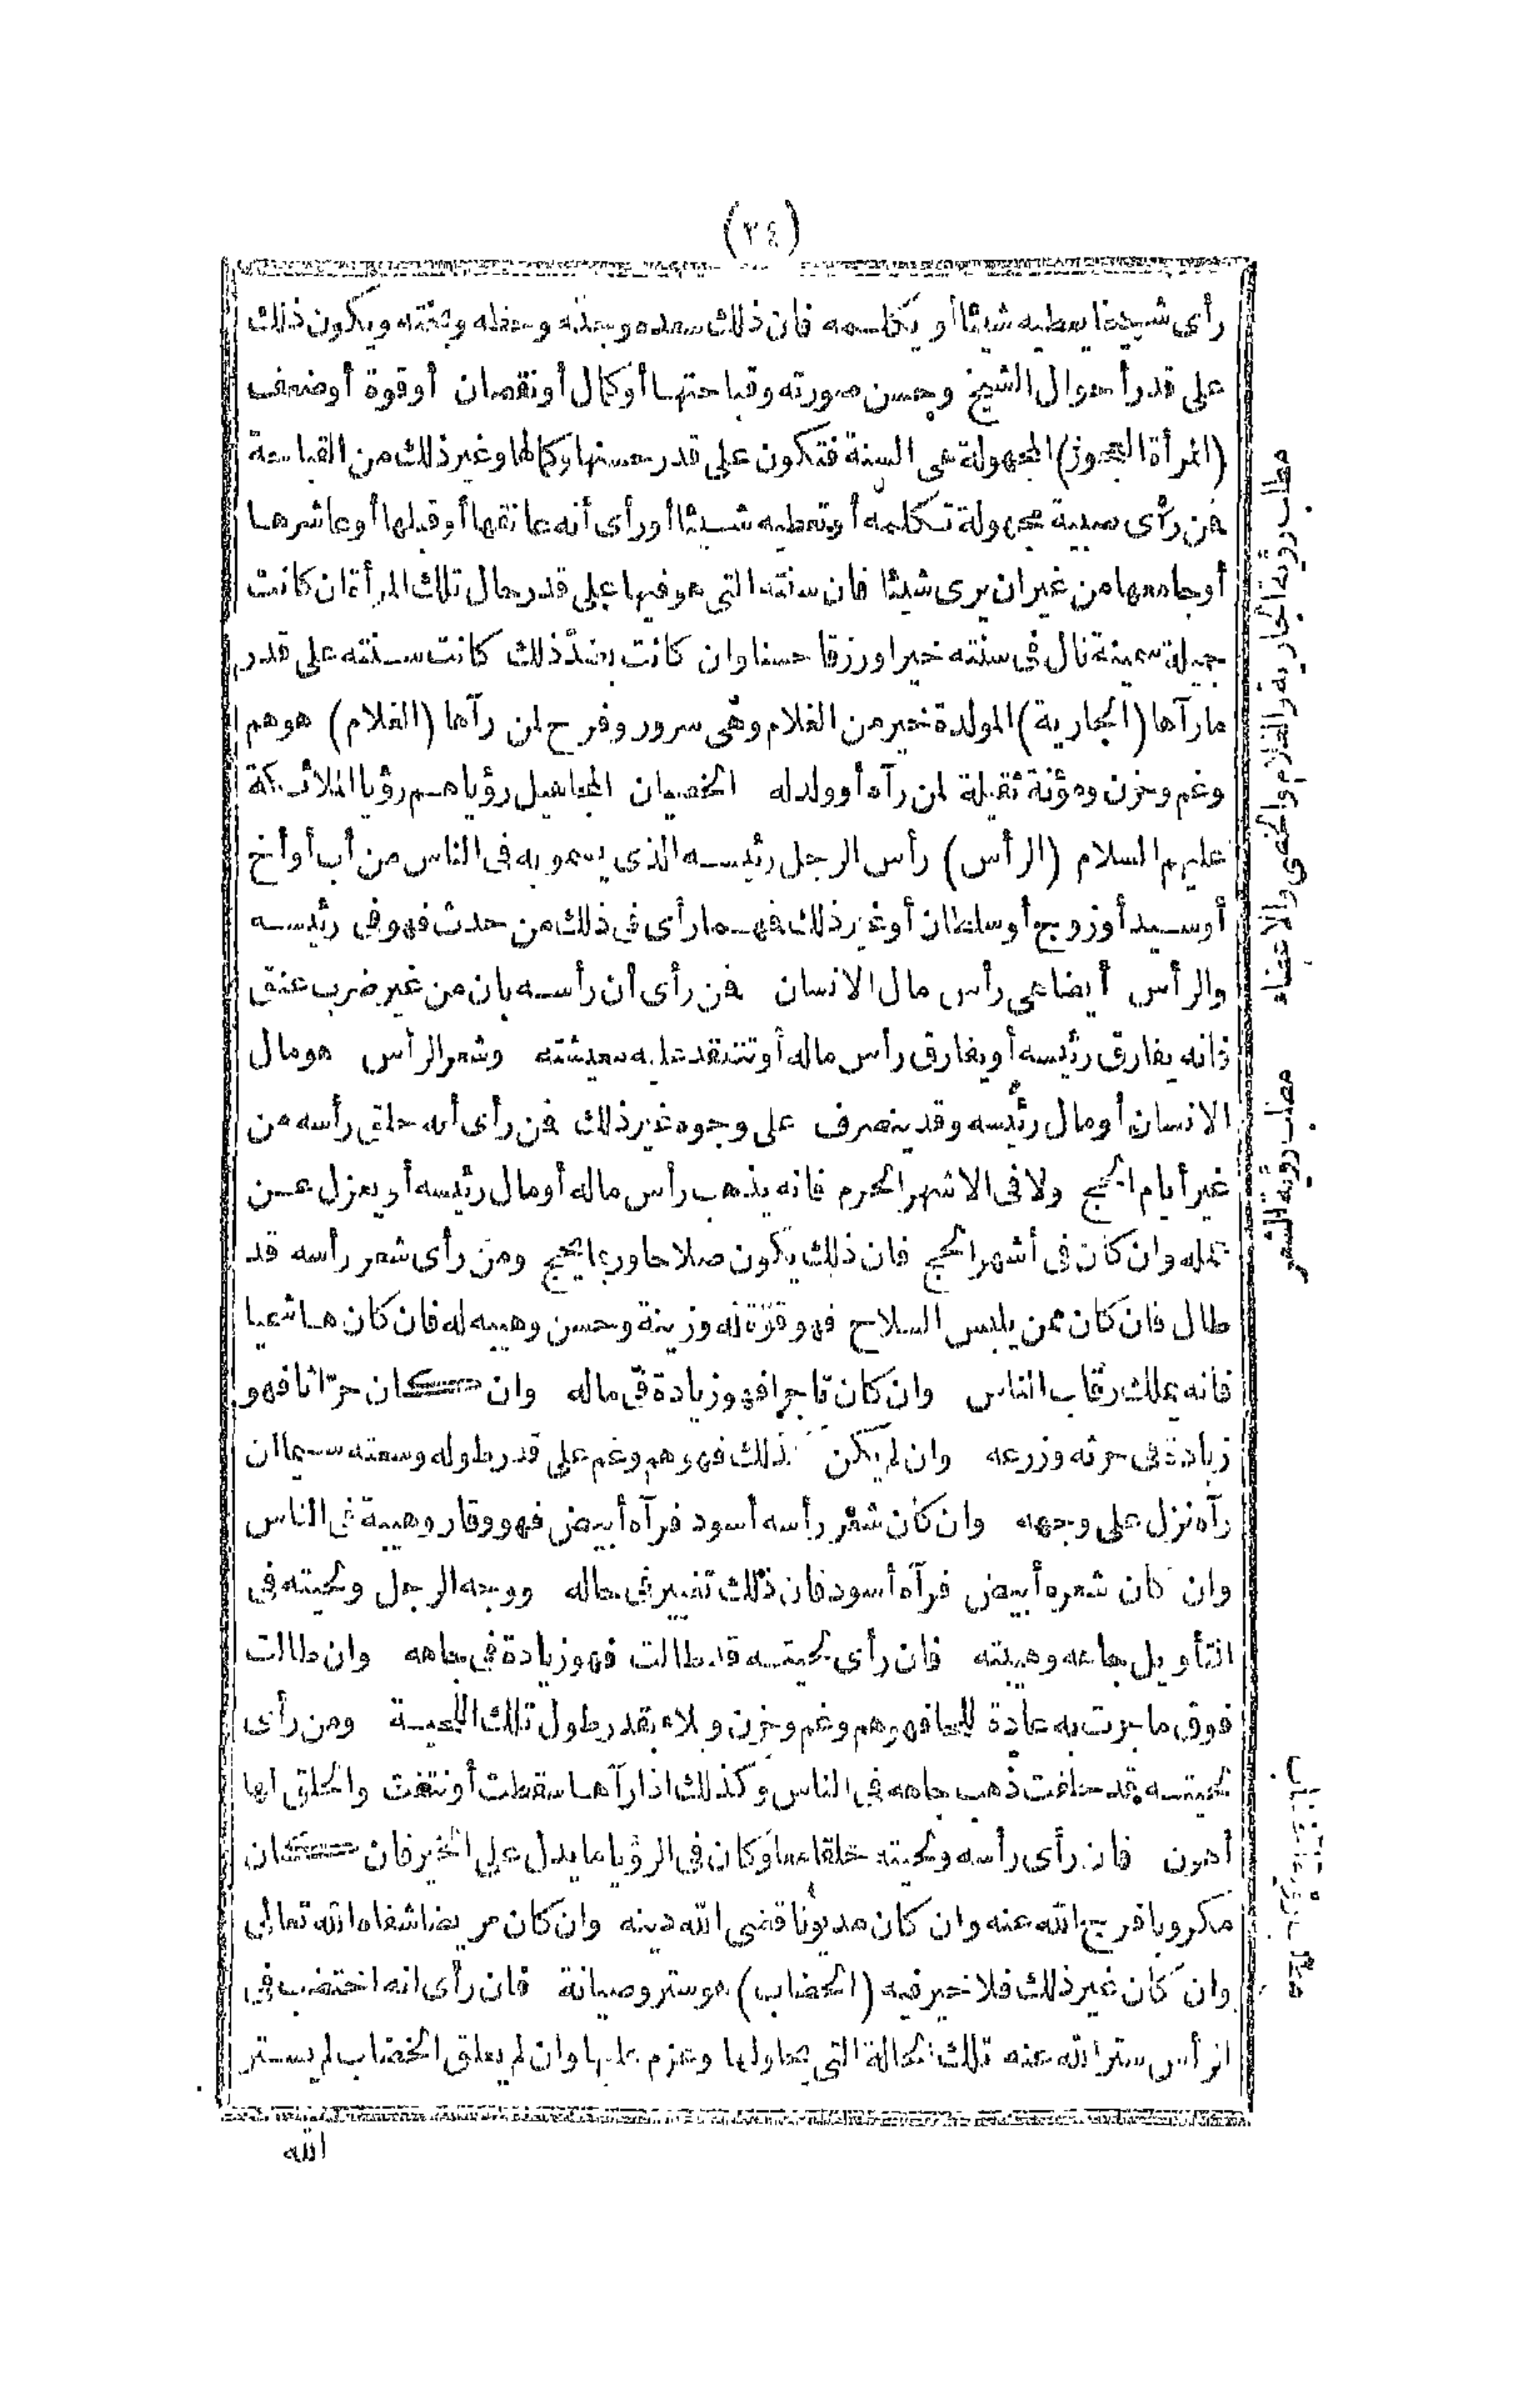 (٣٤)
رأى شيخا يعطيه شيئا أو يكلمه فان ذلك سعده وجدّه وحظه وبخته ويكون ذلك
على قدر أحوال الشيخ وحسن صورته وقباحتها أو كمال أو نقصان أو قوة أو ضعف
(المرأة العجوز) المجهولة هى السنة فتكون على قدر حسنها وكمالها وغير ذلك من القباحة
فن رأى صبية مجهولة تكلمه أو تعطيه شيئا أو رأى أنه عانقها أو قبلها أو عاشرها
أو جامعها من غير ان يرى شيئا فان سنته التى هو فيها على قدر حال تلك المرأة ان كانت
جميلة سمينة نال فى سنته خيرا ورزقا حسنا وان كانت بضدّ ذلك كانت سنته على قدر
مارآها (الجارية) المولدة خير من الغلام وهى سرور وفرح لمن رآها (الغلام) هو هم
وغم وحزن ومؤنة ثقيلة لمن رآه أو ولد له الخصيان المجاهيل رؤياهم رؤيا الملائكة
عليهم السلام (الرأس) رأس الرجل رئيسه الذى يسمو به فى الناس من أب أو أخ
أو سيد أو زوج أو سلطان أو غير ذلك فهما رأى فى ذلك من حدث فهو فى رئيسه
والرأس أيضا هى رأس مال الانسان فن رأى أن رأسه بان من غير ضرب عنق
فانه يفارق رئيسه أو يفارق رأس ماله أو تنتقد عليه معيشته وشعر الرأس هو مال
الانسان أو مال رئيسه وقد ينصرف على وجوه غير ذلك فن رأى أنه حلق رأسه من
غير أيام الحج ولا فى الاشهر الحرم فانه يذهب رأس ماله أو مال رئيسه أو يعزل عن
عمله وان كان فى أشهر الحج فان ذلك يكون صلاحا وربما يحج ومن رأى شعر رأسه قد
طال فان كان ممن يلبس السلاح فهو قوّة له وزينة وحسن وهيبه له فان كان هاشميا
فانه يملك رقاب الناس وان كان تاجرا فهو زيادة فى ماله وان كان حرّاثا فهو
زيادة فى حرثه وزرعه وان لم يكن كذلك فهو هم وغم على قدر طوله وسعته سيما ان
رآه نزل على وجهه وان كان شعر رأسه أسود فرآه أبيض فهو وقار وهيبة فى الناس
وان كان شعره أبيض فرآه أسود فان ذلك تغيير فى حاله ووجه الرجل ولحيته فى
التأويل جاهه وهيبته فان رأى لحيته قد طالت فهو زيادة فى جاهه وان طالت
فوق ماجرت به عادة اللحا فهو هم وغم وحزن وبلاء بقدر طول تلك اللحية ومن رأى
لحيته قد حلقت ذهب جاهه فى الناس وكذلك اذا رآها سقطت أو نتفت والحلق لها
أهون فان رأى رأسه ولحيته حلقا معا وكان فى الرؤيا ما يدل على الخير فان كان
مكروبا فرج الله عنه وان كان مديونا قضى الله دينه وان كان مريضا شفاه الله تعالى
وان كان غير ذلك فلا خير فيه (الخضاب) هو ستر وصيانة فان رأى انه اختضب فى
الرأس ستر الله عنه تلك الحالة التى يحاولها وعزم عليها وان لم يعلق الخضاب لم يستر
الله
مطلب رؤية الجارية والغلام والخصى والاعضاء
مطلب رؤية الشعر